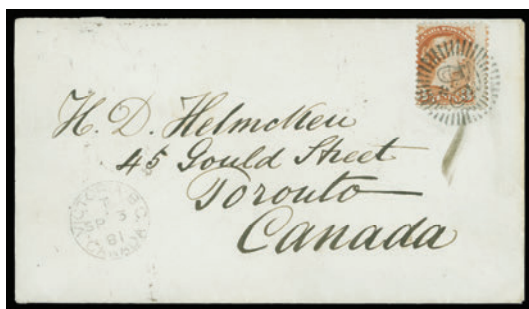 H. D. Helmcken
45 Gould Street
Toronto
Canada
VICTORIA B.C.
SP 3
81